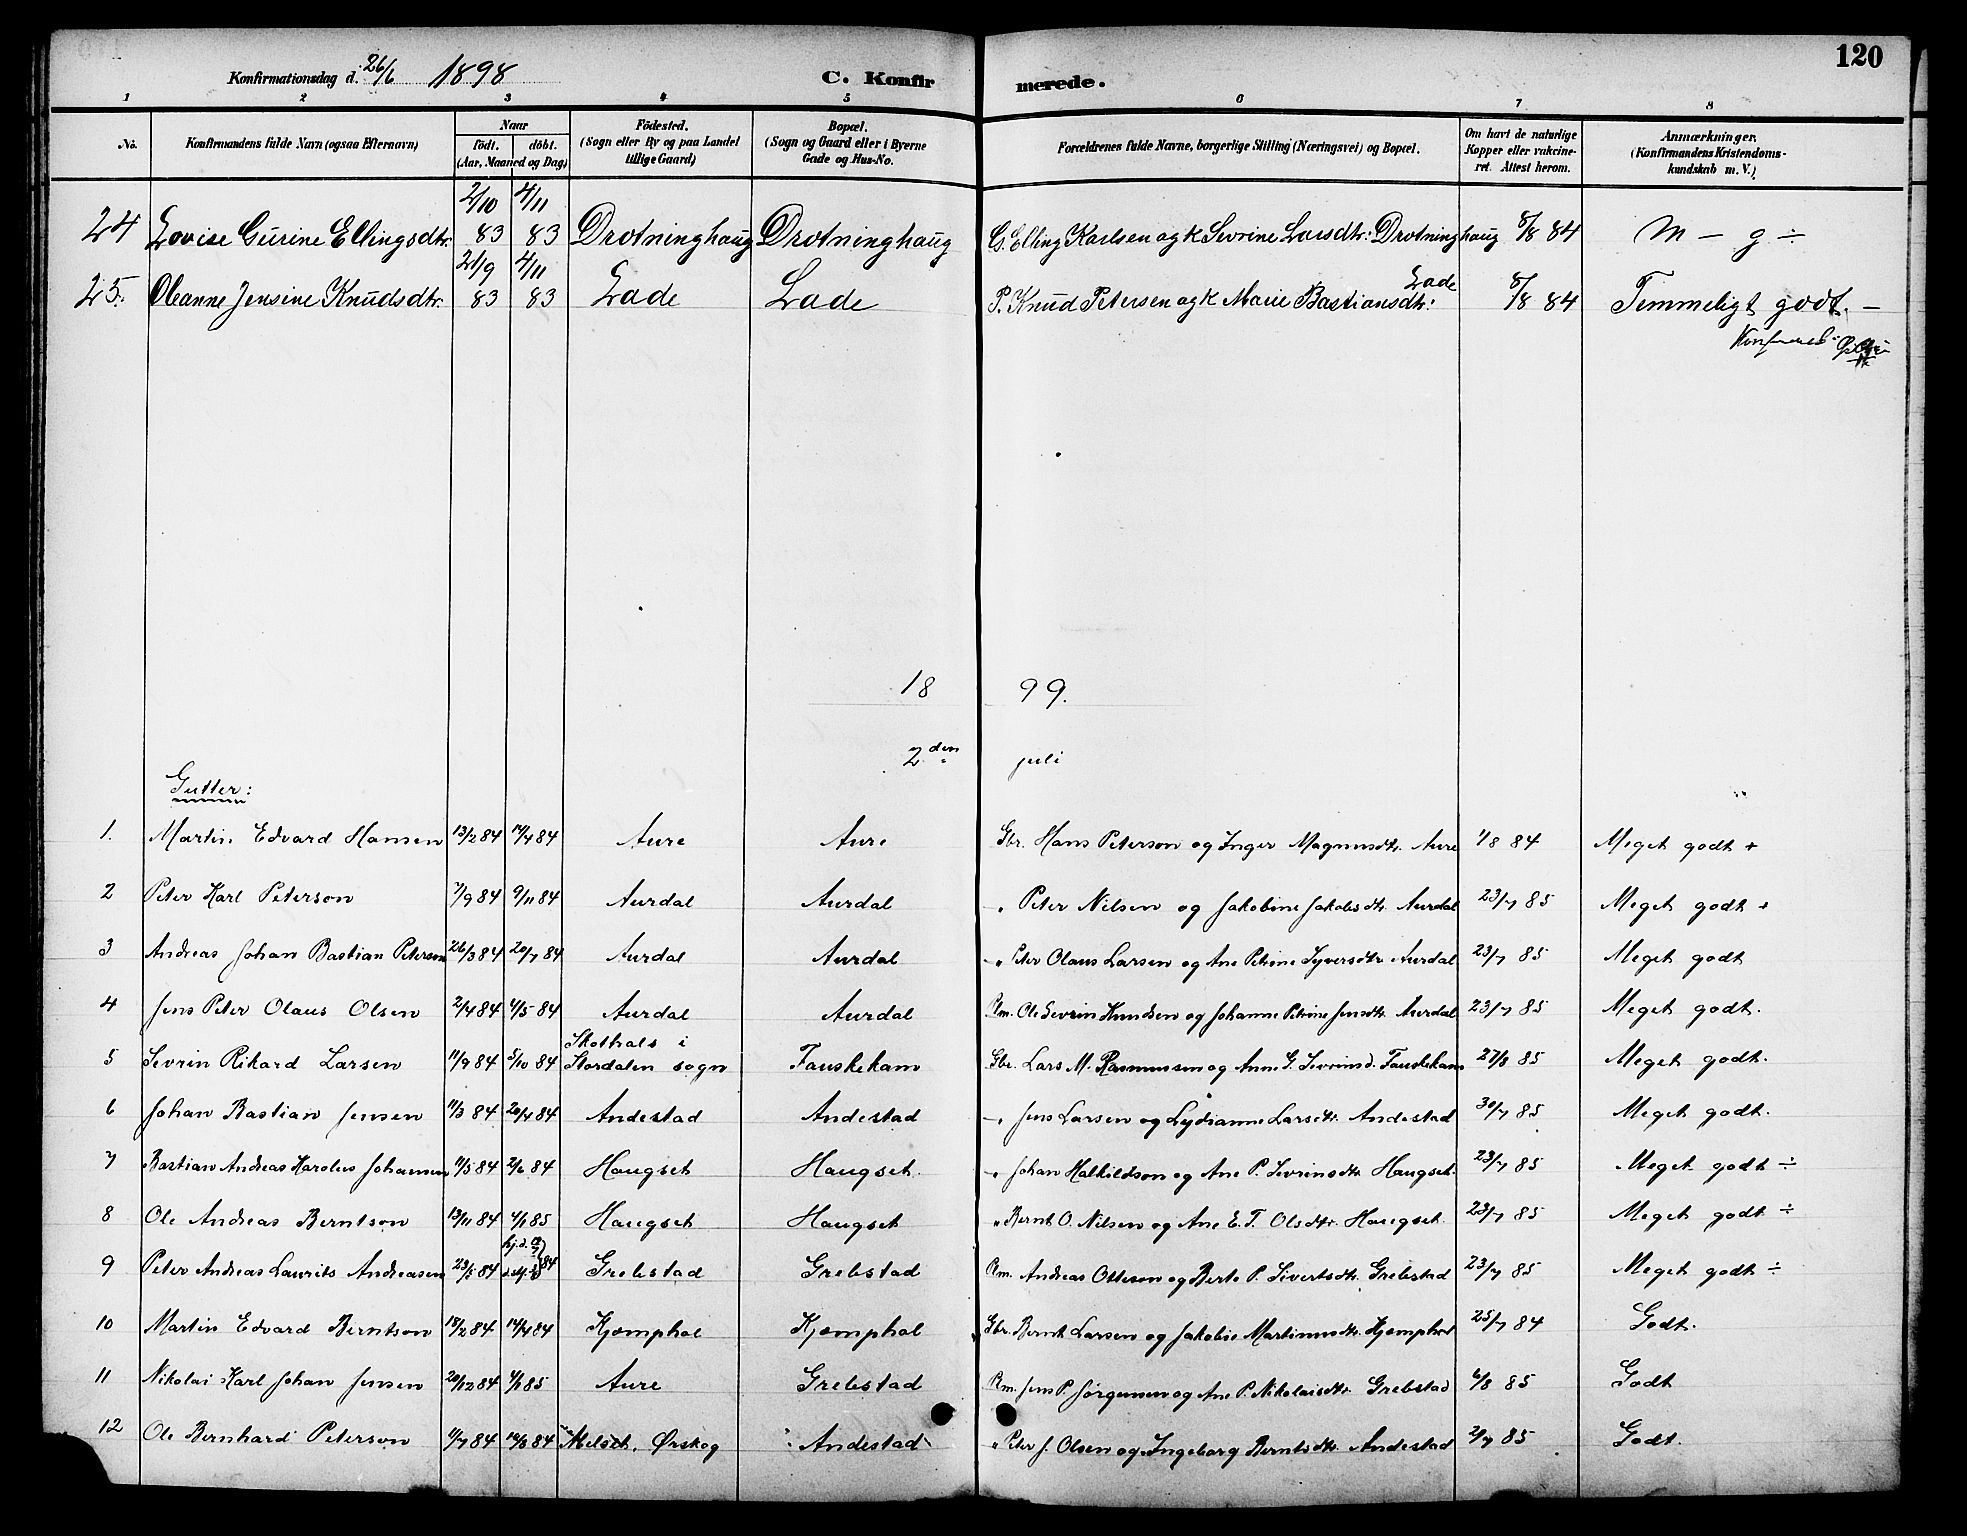 120
Konfirmationsdag d. 26/6 1898 C. Konfirmerede.
1 2 3 4 5 6 7 8
No. Konfirmandens fulde Navn (ogsaa Efternavn) Naar födt. döbt. (Aar, Maaned og Dag) Födested. (Sogn eller By og paa Landet tillige Gaard) Bopæl. (Sogn og Gaard eller i Byerne Gade og Hus-No. Forældrenes fulde Navne, borgerlige Stilling (Næringsvei) og Bopæl. Om havt de naturlige Kopper eller vakcineret. Attest herom. Anmærkninger. (Konfirmandens Kristendomskundskab m. V.)
24 Lovise Gurine Ellingsdtr. 2/10 83 4/11 83 Drotninghaug Drotninghaug G. Elling Karlsen og K Sevrine Larsdtr: Drotninghaug 8/8 84 M – g ÷
25. Oleanne Jensine Knudsdtr. 21/9 83 4/11 83 Lade Lade P. Knud Petersen og K Marie Bastiansdtr: Lade 8/8 84 Temmeligt godt. –
1899.
2den juli
Gutter:
1. Martin Edvard Hansen 13/2 84 14/4 84 Aure Aure Gbr. Hans Peterson og Inger Magnusdtr. Aure 1/8 84 Meget godt +
2 Peter Karl Peterson 7/9 84 9/11 84 Aurdal Aurdal –„ Peter Nilsen og Jakobine Jakobsdtr. Aurdal 23/7 85 Meget godt +
3 Andreas Johan Bastian Peterson 26/3 84 20/7 84 Aurdal Aurdal –„ Peter Olaus Larsen og Ane Petrine Syversdtr. Aurdal 23/7 85 Meget godt
4 Jens Peter Olaus Olsen 2/4 84 4/5 84 Aurdal Aurdal Rm. Ole Sevrin Knudsen og Johanne Petrine Jensdtr. Aurdal 23/7 85 Meget godt.
5 Sevrin Rikard Larsen 11/9 84 5/10 84 Skothals i Stordalen sogn Fauskekam Gbr. Lars M. Rasmussen og Anne G. Sevrinsd. Fauskekam 27/8 85 Meget godt.
6 Johan Bastian Jensen 11/3 84 20/4 84 Andestad Andestad –„ Jens Larsen og Lydianne Larsdtr. Andestad 30/7 85 Meget godt.
7 Bastian Andreas Karolus Johansen 11/5 84 2/6 84 Haugset Haugset. –„ Johan Halkildson og Ane P. Sevrinsdtr. Haugset. 23/7 85 Meget godt ÷
8 Ole Andreas Berntson 13/11 84 4/1 85 Haugset Haugset „ Bernt O. Nilsen og Ane E. T. Olsdtr. Haugset. 23/7 85 Meget godt ÷
9 Peter Andreas Laurits Andreasen 23/5 84 hj.d. 84 Grebstad Grebstad Rm. Andreas Otteson og Berte P. Sivertsdtr. Grebstad 23/7 85 Meget godt ÷
10 Martin Edvard Berntson 18/2 84 14/4 84 Kjæmphol Kjæmphol Gbr. Bernt Larsen og Jakobie Martinusdtr. Kjæmphol 25/7 84 Godt.
11 Nikolai Karl Johan Jensen 20/12 84 4/1 85 Aure Grebstad Rm. Jens P. Jørgensen og Ane P. Nikolaisdtr. Grebstad 6/8 85 Godt
12 Ole Bernhard Peterson 11/7 84 Ørskog Andestad „ Peter J. Olsen og Ingeborg Berntsdtr. Andestad 2/7 85 Godt.